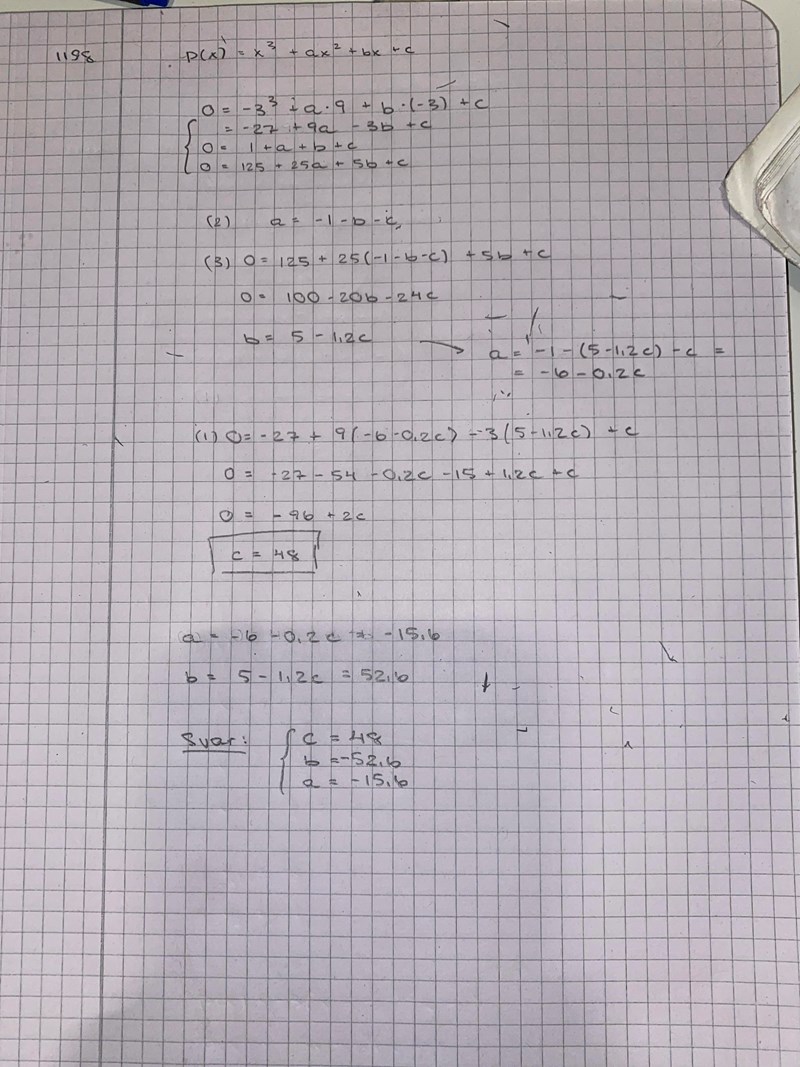 1198
P(x) = x³ + ax² + bx + c
0 = -3³ + a·9 + b·(-3) + c
= -27 + 9a - 3b + c
0 = 1 + a + b + c
0 = 125 + 25a + 5b + c
(2) a = -1 - b - c
(3) 0 = 125 + 25(-1-b-c) + 5b + c
0 = 100 - 20b - 24c
b = 5 - 1,2c → a = -1 - (5-1,2c) - c =
= -6 - 0,2c
(1) 0 = -27 + 9(-6-0,2c) - 3(5-1,2c) + c
0 = -27 - 54 - 0,2c - 15 + 1,2c + c
0 = -96 + 2c
c = 48
a = -6 - 0,2c = -15,6
b = 5 - 1,2c = 52,6
Svar: c = 48
b = -52,6
a = -15,6